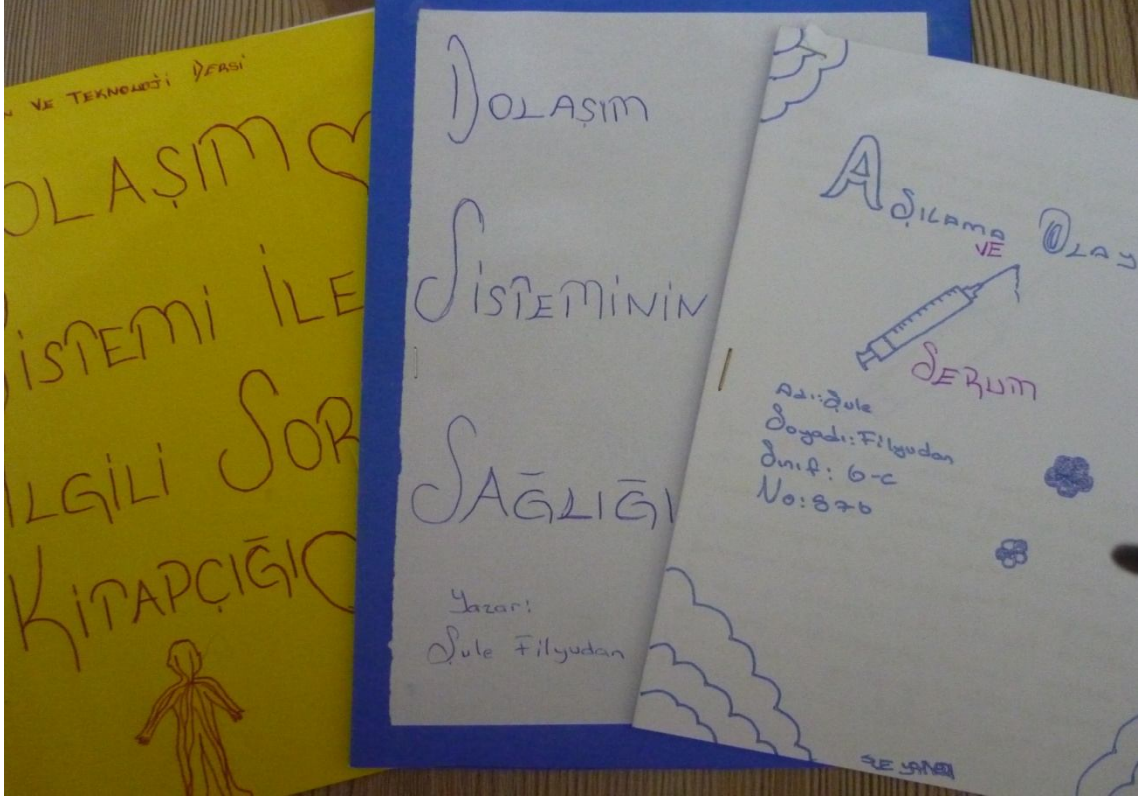 VE TEKNOLOJİ DERSİ
OLAŞIM
İSTEMİ İLE
İLGİLİ SOR
KİTAPÇIĞI
DOLAŞIM
SİSTEMİNİN
SAĞLIĞI
Yazarı:
Şule Filyudan
AŞILAMA OLAY
VE
SERUM
Adı: Şule
Soyadı: Filyudan
Sınıf: 6-c
No: 876